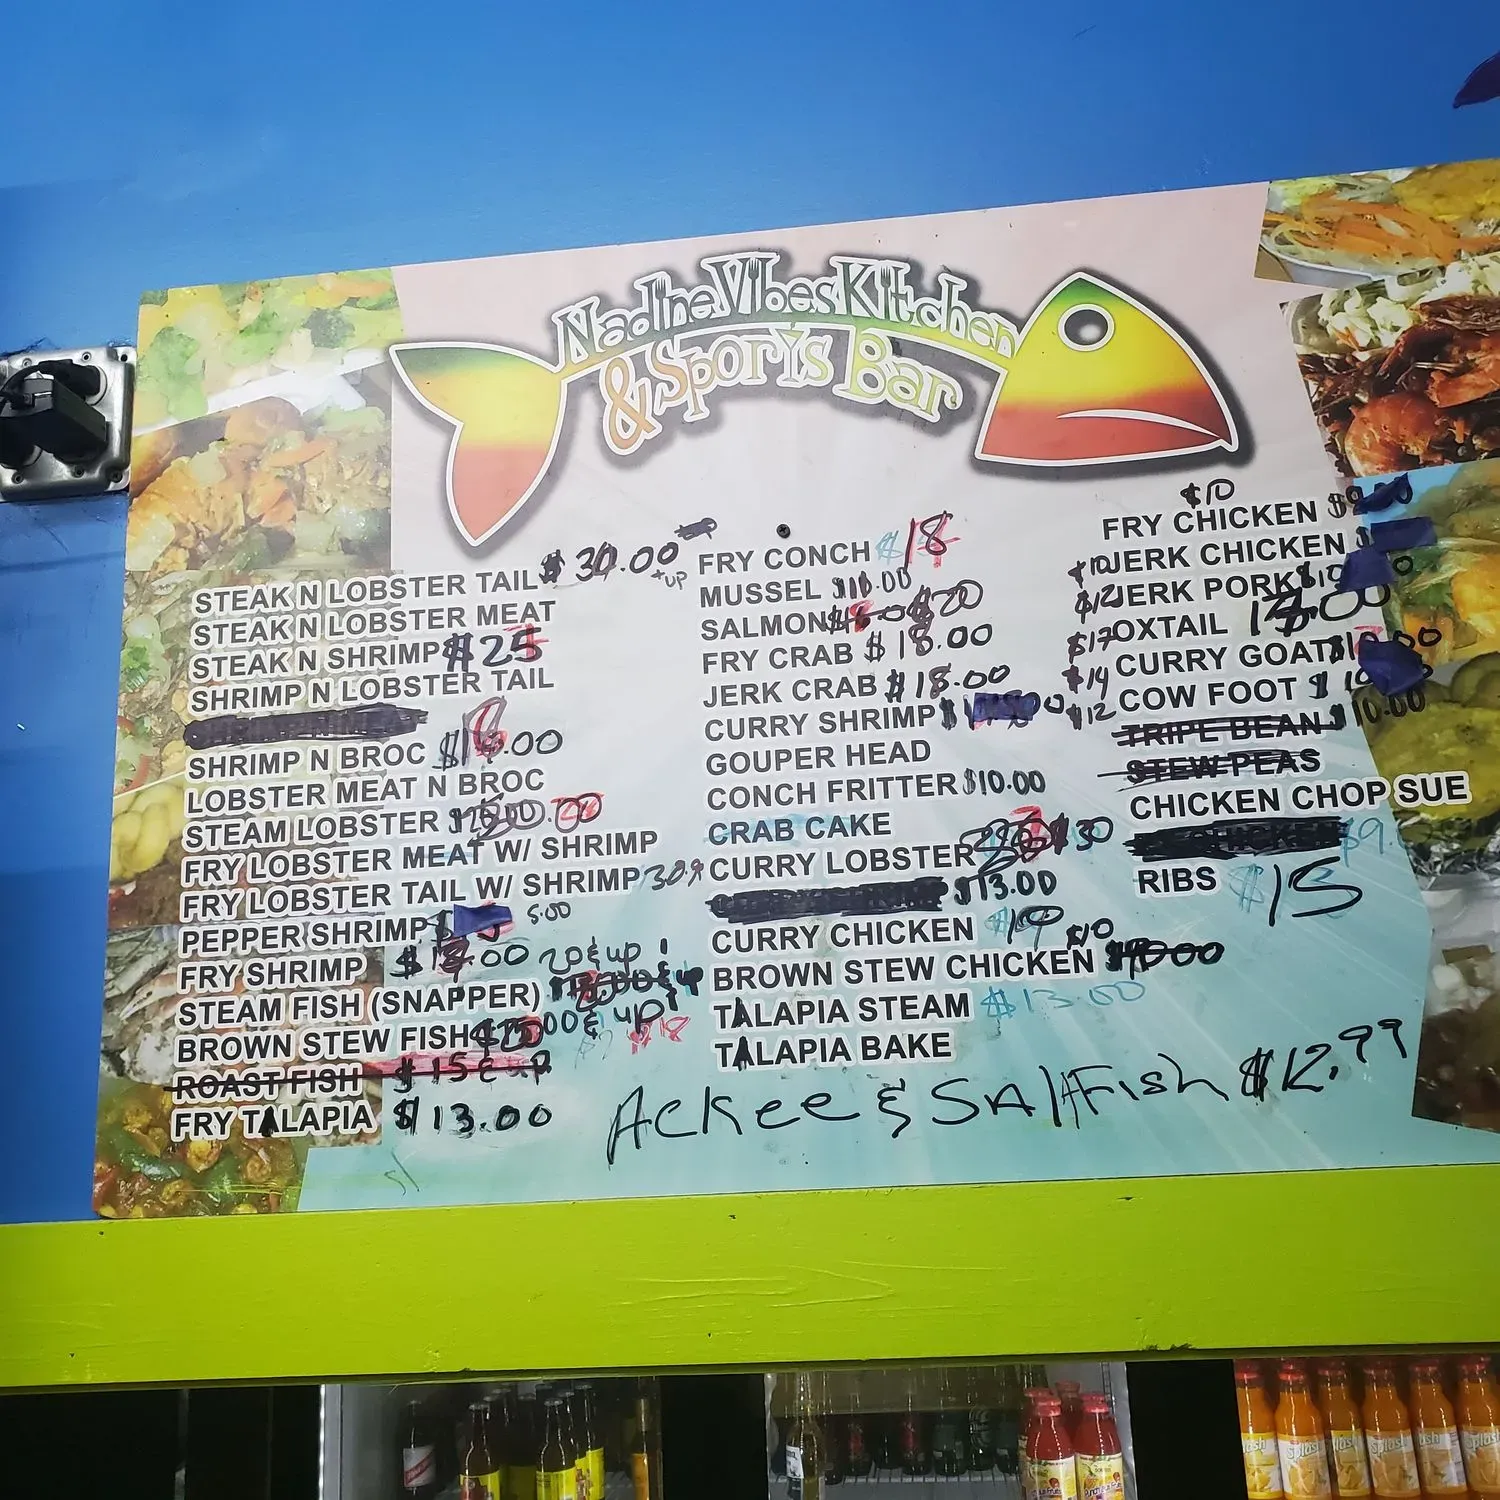 Nadine Vibes Kitchen
& Sports Bar
STEAK N LOBSTER TAIL $30.00 + UP
STEAK N LOBSTER MEAT
STEAK N SHRIMP $25
SHRIMP N LOBSTER TAIL
SHRIMP N BROC .00
LOBSTER MEAT N BROC
STEAM LOBSTER
FRY LOBSTER MEAT W/ SHRIMP
FRY LOBSTER TAIL W/ SHRIMP
PEPPER SHRIMP 5.00
FRY SHRIMP
STEAM FISH (SNAPPER) 20 & up
BROWN STEW FISH & up
ROAST FISH $15 & up
FRY TALAPIA $13.00
FRY CONCH $18
MUSSEL .00
SALMON $20
FRY CRAB $18.00
JERK CRAB $18.00
CURRY SHRIMP
GOUPER HEAD
CONCH FRITTER $10.00
CRAB CAKE
CURRY LOBSTER $30
$13.00
CURRY CHICKEN
BROWN STEW CHICKEN $10
TALAPIA STEAM $13.00
TALAPIA BAKE
$10
FRY CHICKEN
$10 JERK CHICKEN
$12 JERK PORK
$17 OXTAIL
$14 CURRY GOAT
$12 COW FOOT
TRIPE BEAN $10.00
STEW PEAS
CHICKEN CHOP SUE
CHICKEN $9.
RIBS $15
Ackee & SAltFish $12.99
Splash
Splash
Splash